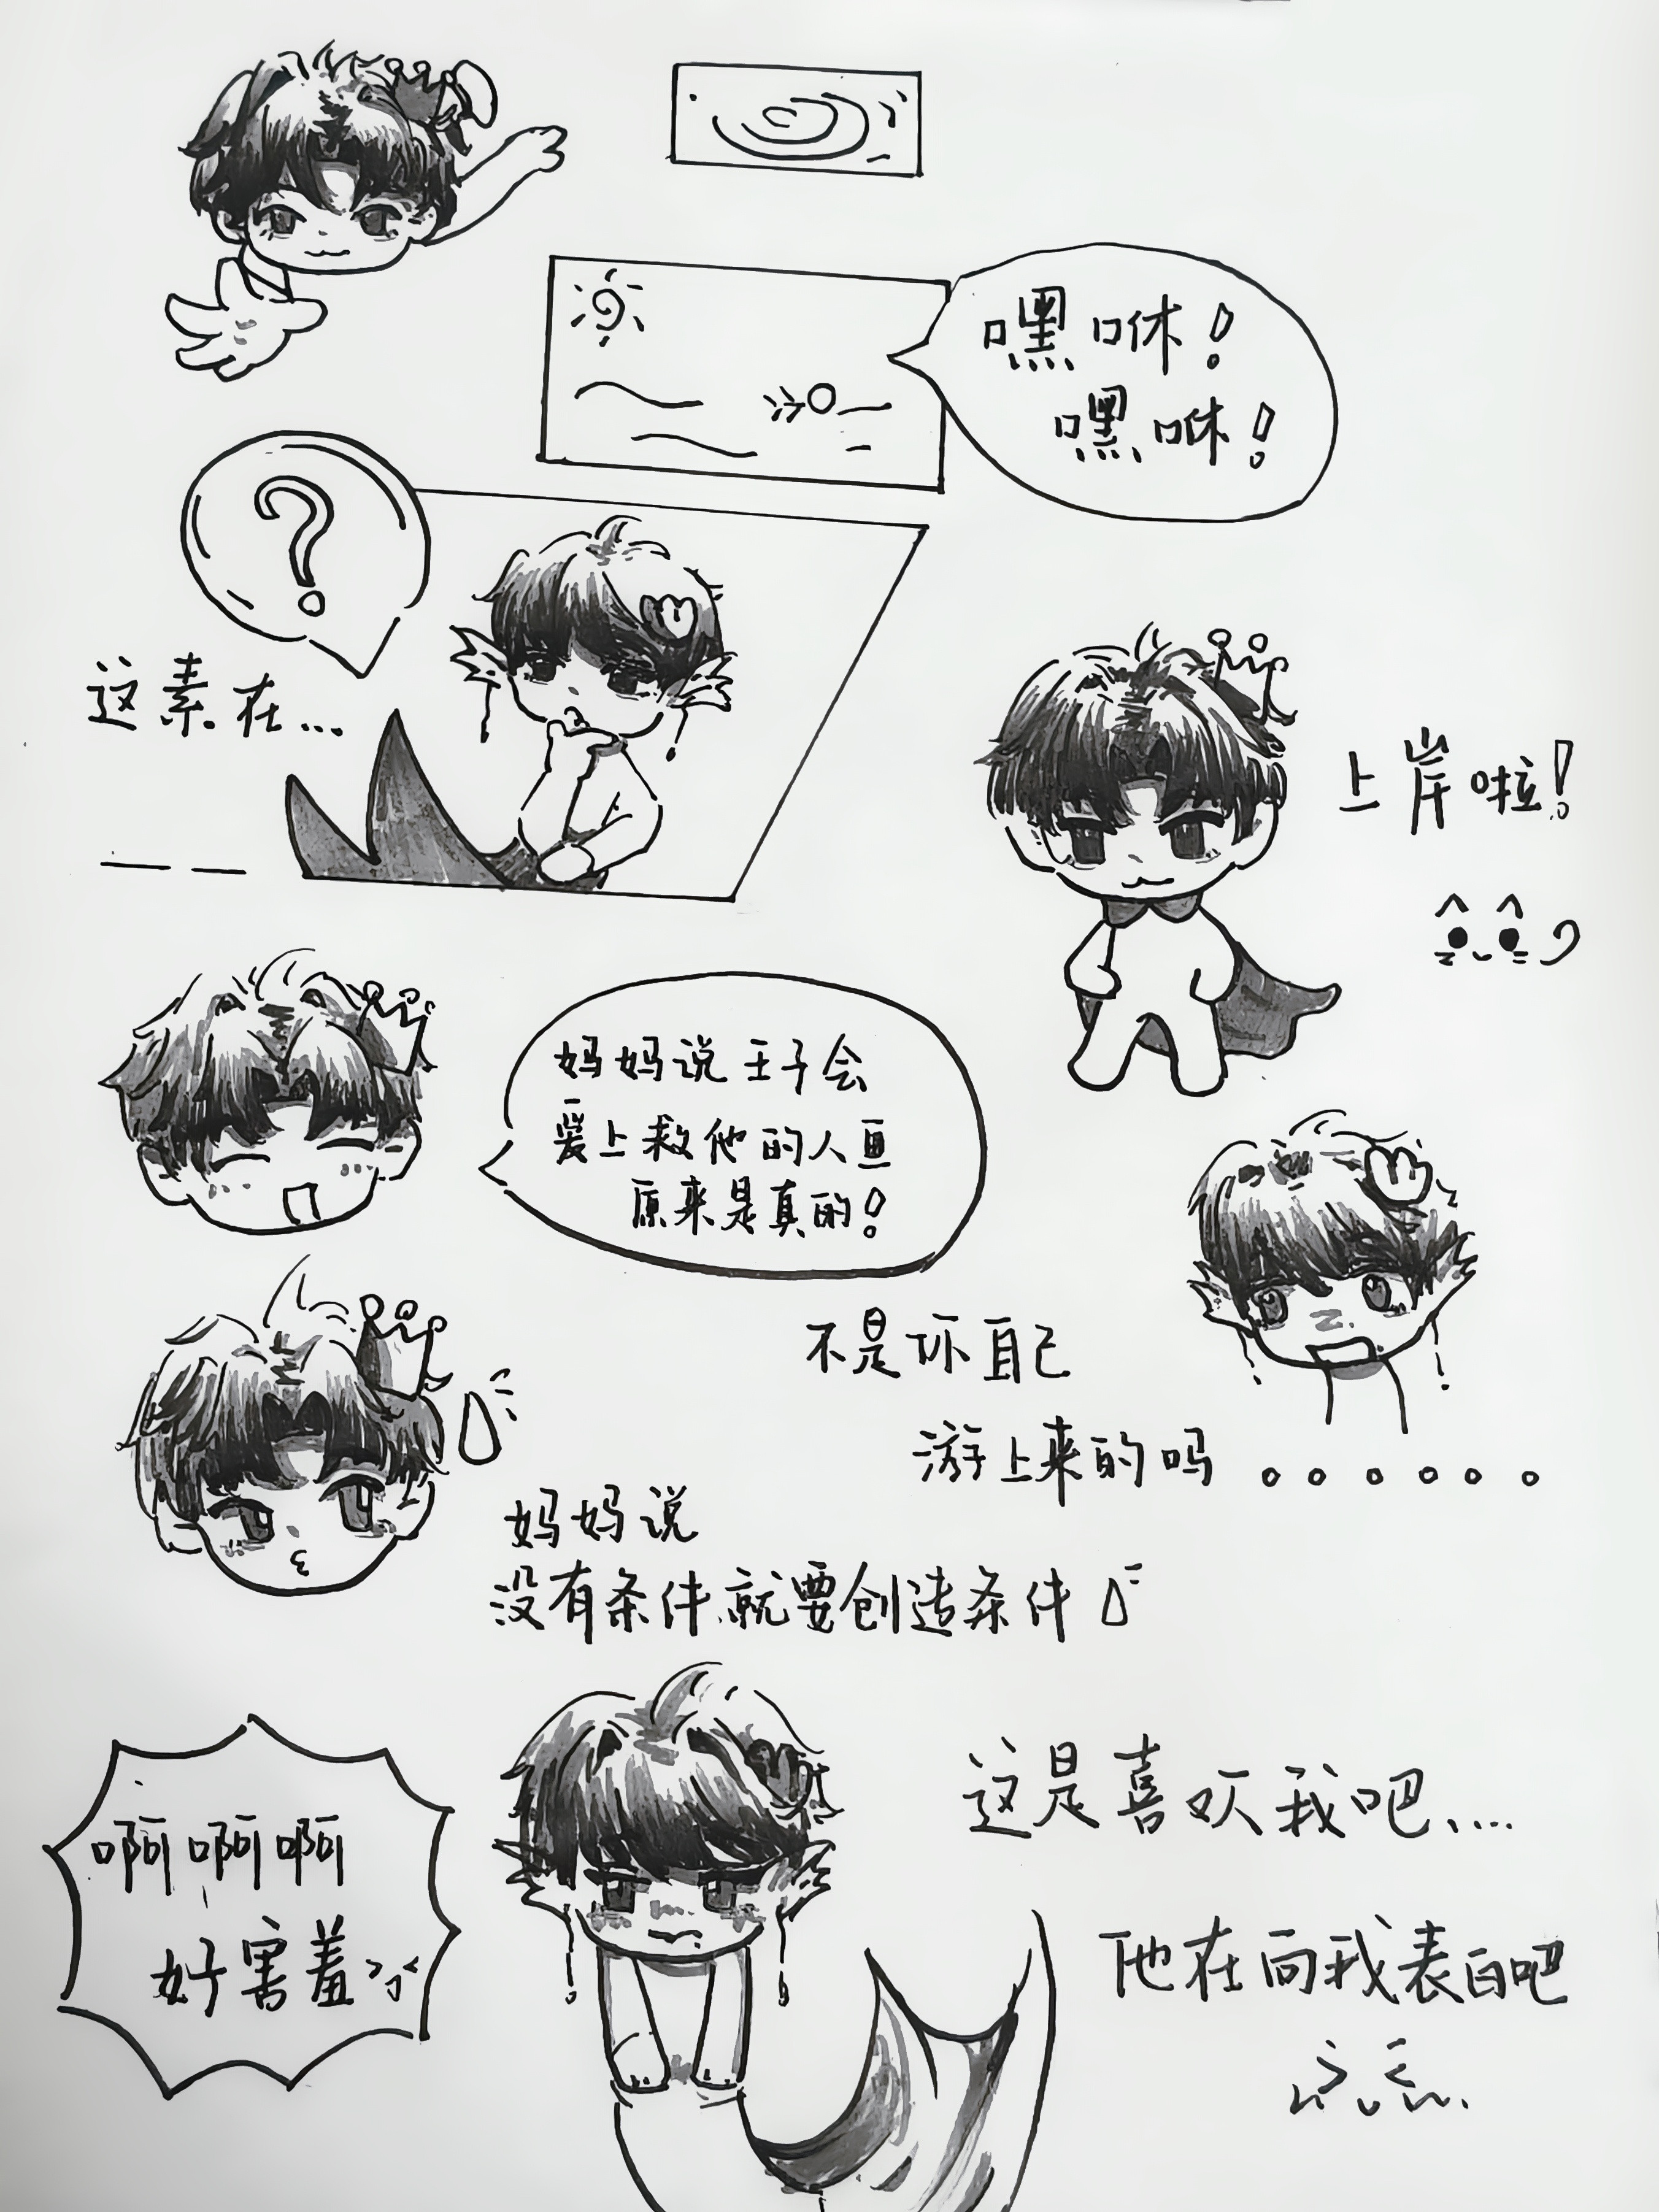 嘿咻!
嘿咻!
?
这素在...
上岸啦!
妈妈说王子会
爱上救他的人鱼
原来是真的!
不是你自己
游上来的吗。。。。。。
妈妈说
没有条件就要创造条件
啊啊啊
好害羞
这是喜欢我吧....
他在向我表白吧